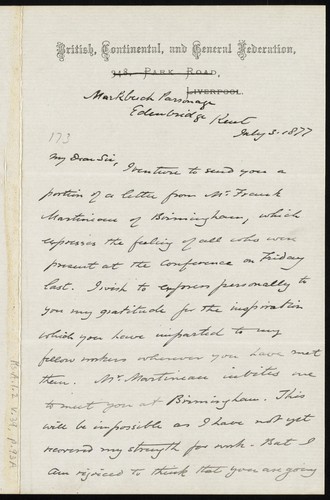 British, Continental, and General Federation,
348, PARK ROAD,
LIVERPOOL.
Markbeech Parsonage
Edenbridge Kent
July 3. 1877
173
My Dear Sir, I venture to send you a
portion of a letter from Mr. Frank
Martineau of Birmingham, which
expresses the feeling of all who were
present at the conference on Friday
last. I wish to express personally to
you my gratitude for the inspiration
which you have imparted to my
fellow workers wherever you have met
them. Mr. Martineau invites me
to meet you at Birmingham. This
will be impossible as I have not yet
recovered my strength for work. But I
am rejoiced to think that you are going